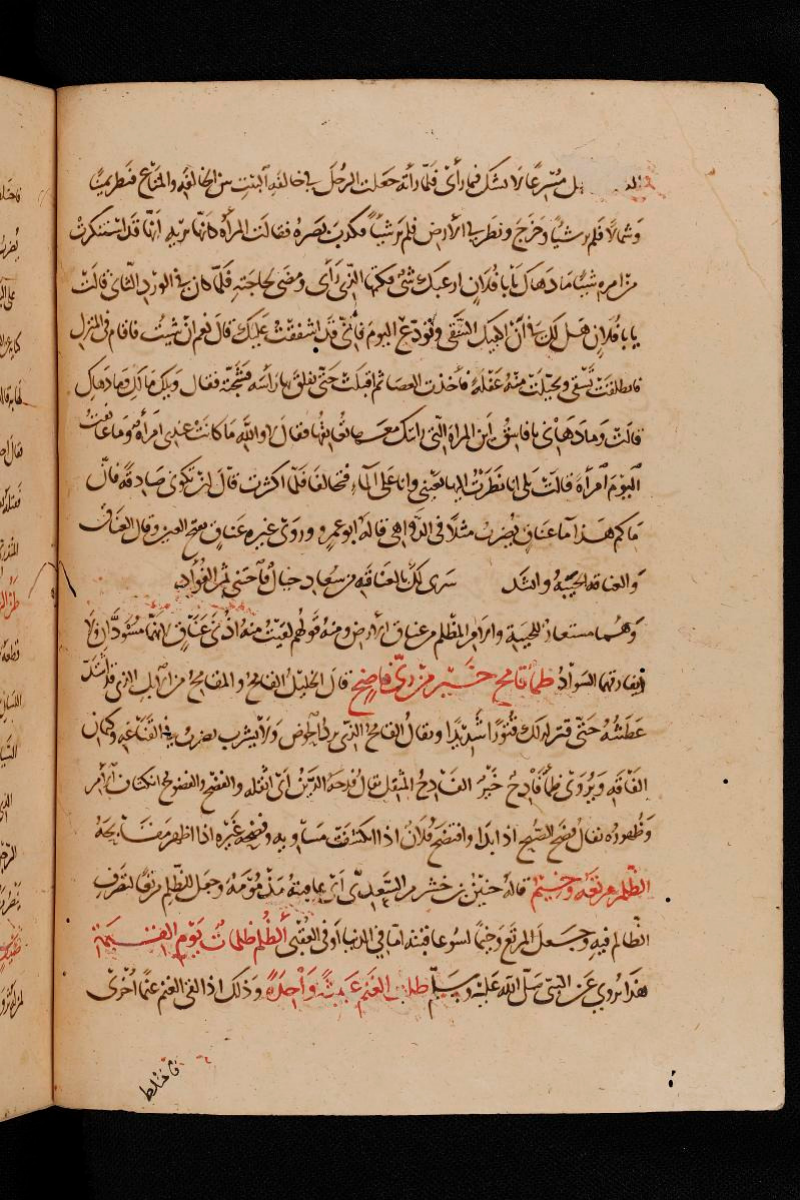 مسرعا لا شك فيما رأى فلما رأته جعلت الرجل في خالفة البيت بين الخالفة والمتاع فنظر يمينا
وشمالا فلم ير شيئا وخرج ونظر في الأرض فلم ير شيئا فكذب بصره فقالت المرأة كأنها تريه أنها قد استنكرت
من امره شيئا ما دهاك يا با فلان ارعبك شيء فكتمها الذي رأى ومضى لحاجته فلما كان في الورد الثاني قالت
يا با فلان هل لك في أن اكفيك السقي وتودع اليوم فإني قد اشفقت عليك قال نعم ان شيت فاقام في المنزل
فانطلقت تسقي وتحينت منه غفلة فأخذت العصا ثم اقبلت حتى تفلق بها رأسه فشجته فقال ويلك ما لك وما دهاك
قالت وما دهاني يا فاسق اين المراة التي رايتك معها تعانقها فقال لا والله ما كانت عندي امرأة وما عانقت
اليوم امرأة قالت بلى انا نظرت اليها بعيني وانا على الماء فتحالفا فلما اكثرت قال ان تكوني صادقة فان
ماكم هذا ما عناق يضرب مثلا في الدواهي قاله ابو عمرو وروى غيره عناق بفتح العين وقال العناق
والعناقة الخيبة وانشد سرى لك بالعناقة من سعاد خيال فاجتنى ثمر الفؤاد
وهما مستعاد للخيبة والامر المظلم من عناق الأرض ومنه قولهم لقيت منه اذني عناق لانهما مسودان ولا
يفارقهما السواد ظمأ قامح خير من ري فاضح قال الخليل القامح والمقامح من الابل الذي قد اشتد
عطشه حتى فتر لذلك فتورا شديدا ويقال القامح الذي يرد الحوض ولا يشرب يضرب في القناعة وكتمان
الفاقة ويروى ظمأ قادح خير الفادح المثقل يقال فدحه الدين أي اثقله والفضح والفضوح انكشاف الأمر
وظهوره يقال فضح الصبح اذا بدا وافتضح فلان اذا انكشفت مساويه وفضحه غيره اذا اظهر مقابحه
الظلم مرتعه وخيم قاله حنين بن خشرم السعدي أي عاقبته مذمومة وجعل للظلم مرتعا لتصرف
الظالم فيه وجعل المرتع وخيما لسوء عاقبته اما في الدنيا او في العقبى الظلم ظلمات يوم القيمة
هذا يروى عن النبي صلى الله عليه وسلم ظلت الغنم عبيثة واحدة وذلك اذا لقي الغنم غنما أخرى
فاختلط